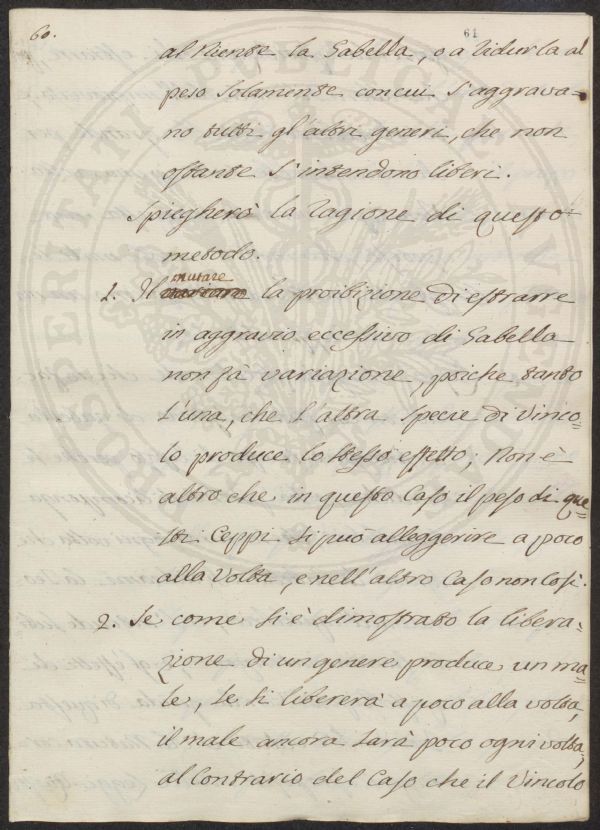 60.
61
al niente la Gabella, o a ridurla al
peso solamente con cui s'aggrava=
no tutti gl'altri generi, che non
ostante s'intendono liberi.
Spiegherò la ragione di questo
metodo.
mutare
1. Il la proibizione di estrarre
in aggravio eccessivo di Gabella
non fà variazione, poiche tanto
l'una, che l'altra specie di vinco=
lo produce lo stesso effetto; Non è
altro che in questo caso il peso di que=
sti Ceppi si può alleggerire a poco
alla volta, e nell'altro caso non così.
2. Se come si è dimostrato la libera=
zione di un genere produce un ma=
le, se si libererà a poco alla volta,
il male ancora sarà poco ogni volta,
al contrario del caso che il vincolo
PROSPERITATI PUBLICAE AUGENDAE